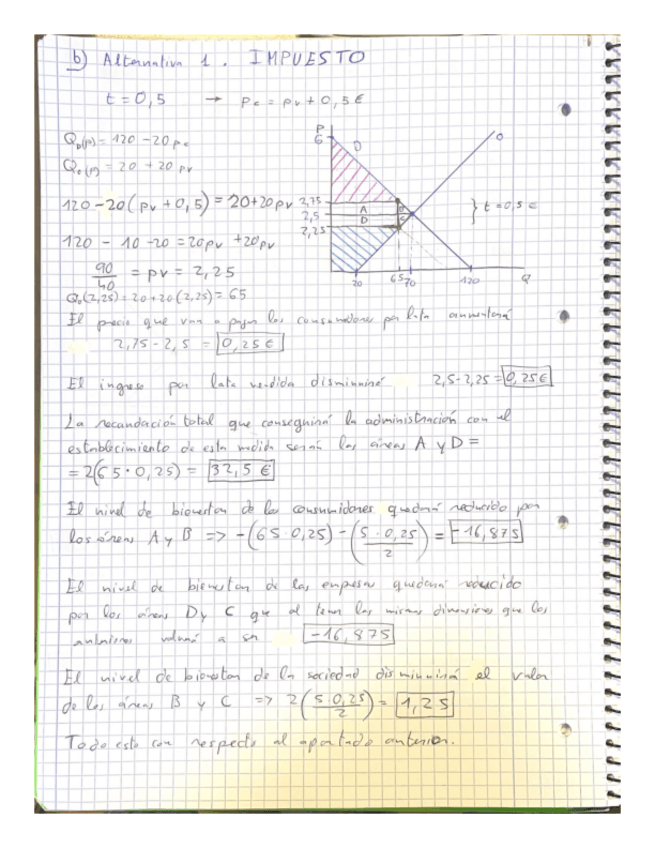 b) Alternativa 1. IMPUESTO
t = 0,5 → Pc = pv + 0,5 €
QD(p) = 120 - 20 pc
Qo(p) = 20 + 20 pv
120 - 20(pv + 0,5) = 20 + 20 pv
120 - 10 - 20 = 20pv + 20pv
90/40 = pv = 2,25
Qo(2,25) = 20 + 20(2,25) = 65
P
6
D
O
2,75
2,5
2,25
A
B
D
C
} t = 0,5 €
20
65
70
120
Q
El precio que van a pagar los consumidores por lata aumentará
2,75 - 2,5 = 0,25 €
El ingreso por lata vendida disminuirá 2,5 - 2,25 = 0,25 €
La recaudación total que conseguirá la administración con el
establecimiento de esta medida serán las áreas A y D =
= 2(65 · 0,25) = 32,5 €
El nivel de bienestar de los consumidores quedará reducido por
los áreas A y B => -(65 · 0,25) - (5 · 0,25 / 2) = -16,875
El nivel de bienestar de las empresas quedará reducido
por las áreas D y C que al tener las mismas dimensiones que las
anteriores volverá a ser -16,875
El nivel de bienestar de la sociedad disminuirá el valor
de las áreas B y C => 2(5 · 0,25 / 2) = 1,25
Todo esto con respecto al apartado anterior.